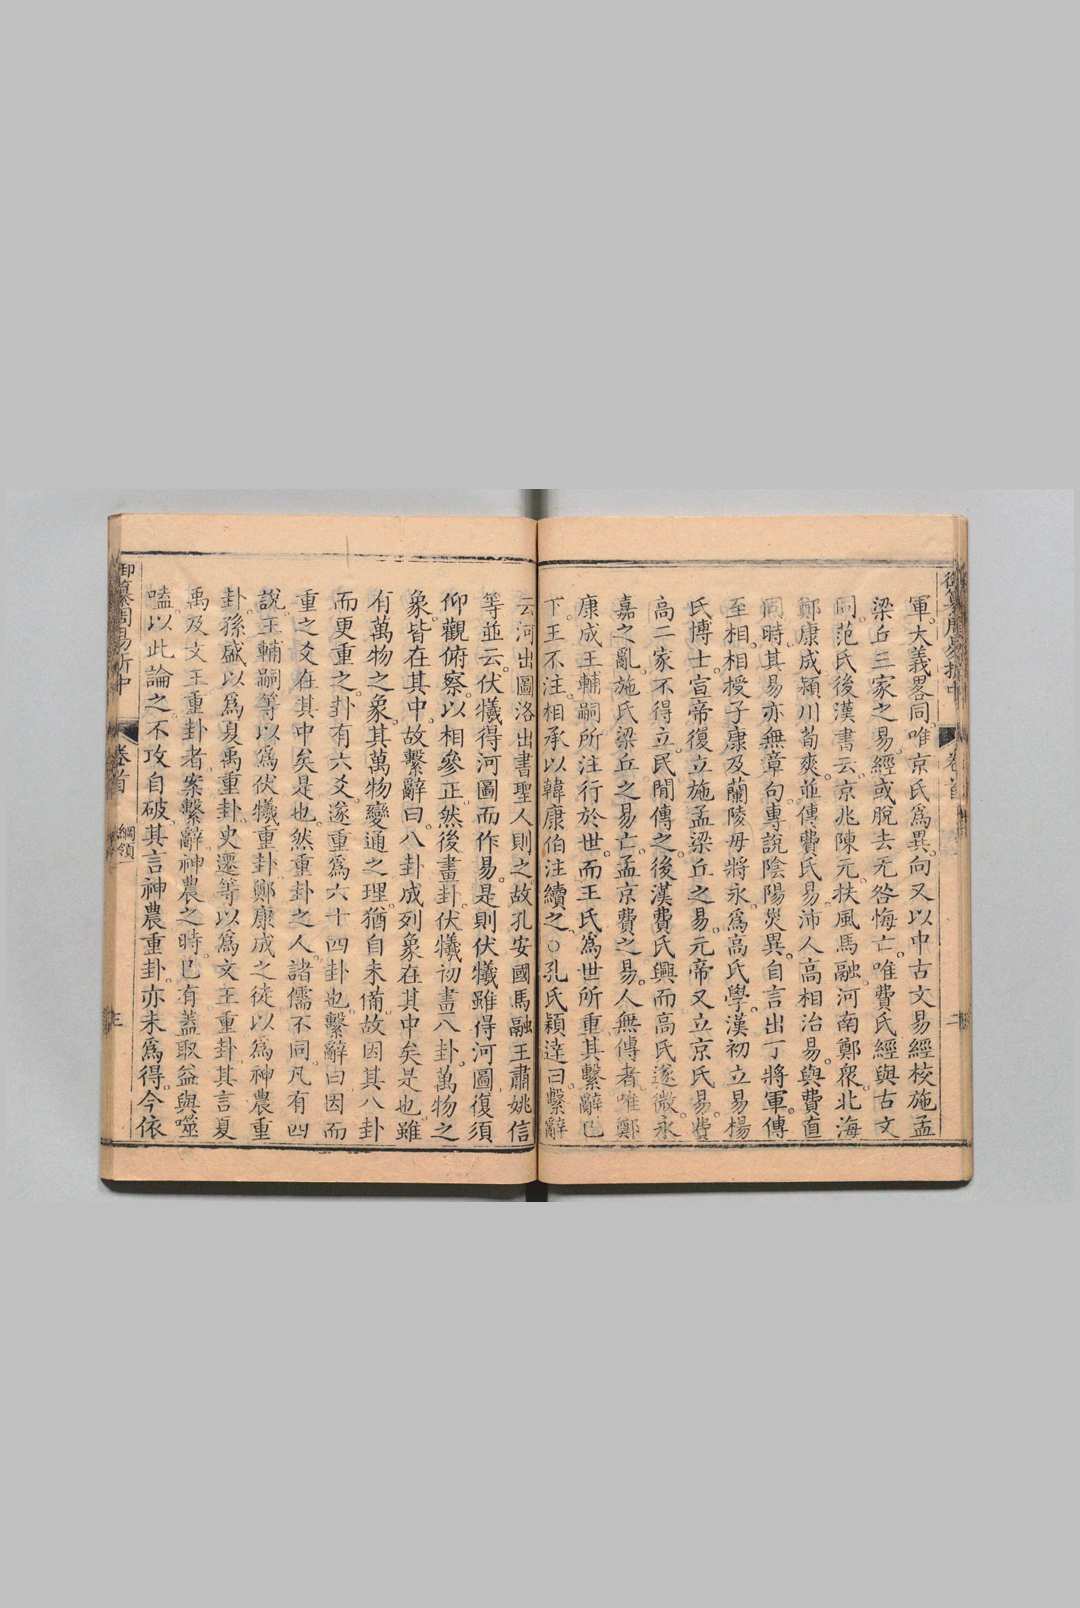 軍。大義畧同。唯京氏爲異。向又以中古文易經校施孟
梁丘三家之易。經或脫去无咎悔亡。唯費氏經與古文
同。范氏後漢書云。京兆陳元。扶風馬融。河南鄭衆。北海
鄭康成。潁川荀爽。並傳費氏易。沛人高相治易。與費直
同時。其易亦無章句。專說陰陽災異。自言出丁將軍。傳
至相。相授子康及蘭陵毋將永。爲高氏學。漢初立易楊
氏博士。宣帝復立施孟梁丘之易。元帝又立京氏易。費
高二家不得立。民間傳之。後漢費氏興而高氏遂微。永
嘉之亂。施氏梁丘之易亡。孟京費之易。人無傳者。唯鄭
康成王輔嗣所注行於世。而王氏爲世所重。其繫辭已
下。王不注。相承以韓康伯注續之。○孔氏穎達曰。繫辭
云。河出圖。洛出書。聖人則之。故孔安國馬融王肅姚信
等並云。伏犧得河圖而作易。是則伏犧雖得河圖。復須
仰觀俯察。以相參正。然後畫卦。伏犧初畫八卦。萬物之
象。皆在其中。故繫辭曰。八卦成列。象在其中矣是也。雖
有萬物之象。其萬物變通之理。猶自未備。故因其八卦
而更重之。卦有六爻。遂重爲六十四卦也。繫辭曰。因而
重之。爻在其中矣是也。然重卦之人。諸儒不同。凡有四
說。王輔嗣等以爲伏犧重卦。鄭康成之徒以爲神農重
卦。孫盛以爲夏禹重卦。史遷等以爲文王重卦。其言夏
禹及文王重卦者。案繫辭神農之時。已有蓋取益與噬
嗑。以此論之。不攻自破。其言神農重卦。亦未爲得。今依
御纂周易折中
卷首
綱領一
三